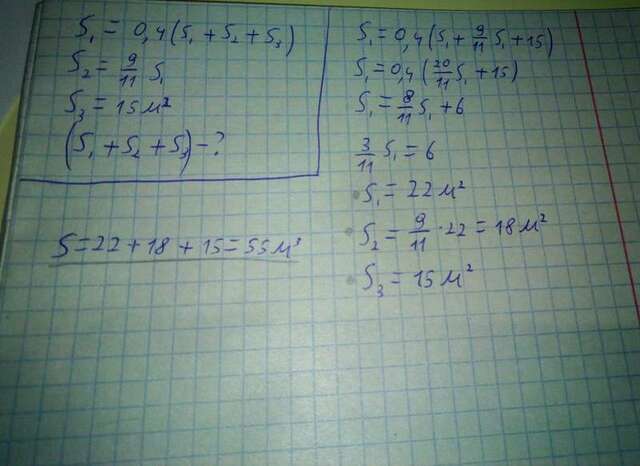 S₁ = 0,4(S₁ + S₂ + S₃)
S₂ = 9/11 S₁
S₃ = 15 м²
(S₁ + S₂ + S₃) - ?
S = 22 + 18 + 15 = 55 м²
S₁ = 0,4(S₁ + 9/11 S₁ + 15)
S₁ = 0,4(20/11 S₁ + 15)
S₁ = 8/11 S₁ + 6
3/11 S₁ = 6
S₁ = 22 м²
S₂ = 9/11 · 22 = 18 м²
S₃ = 15 м²